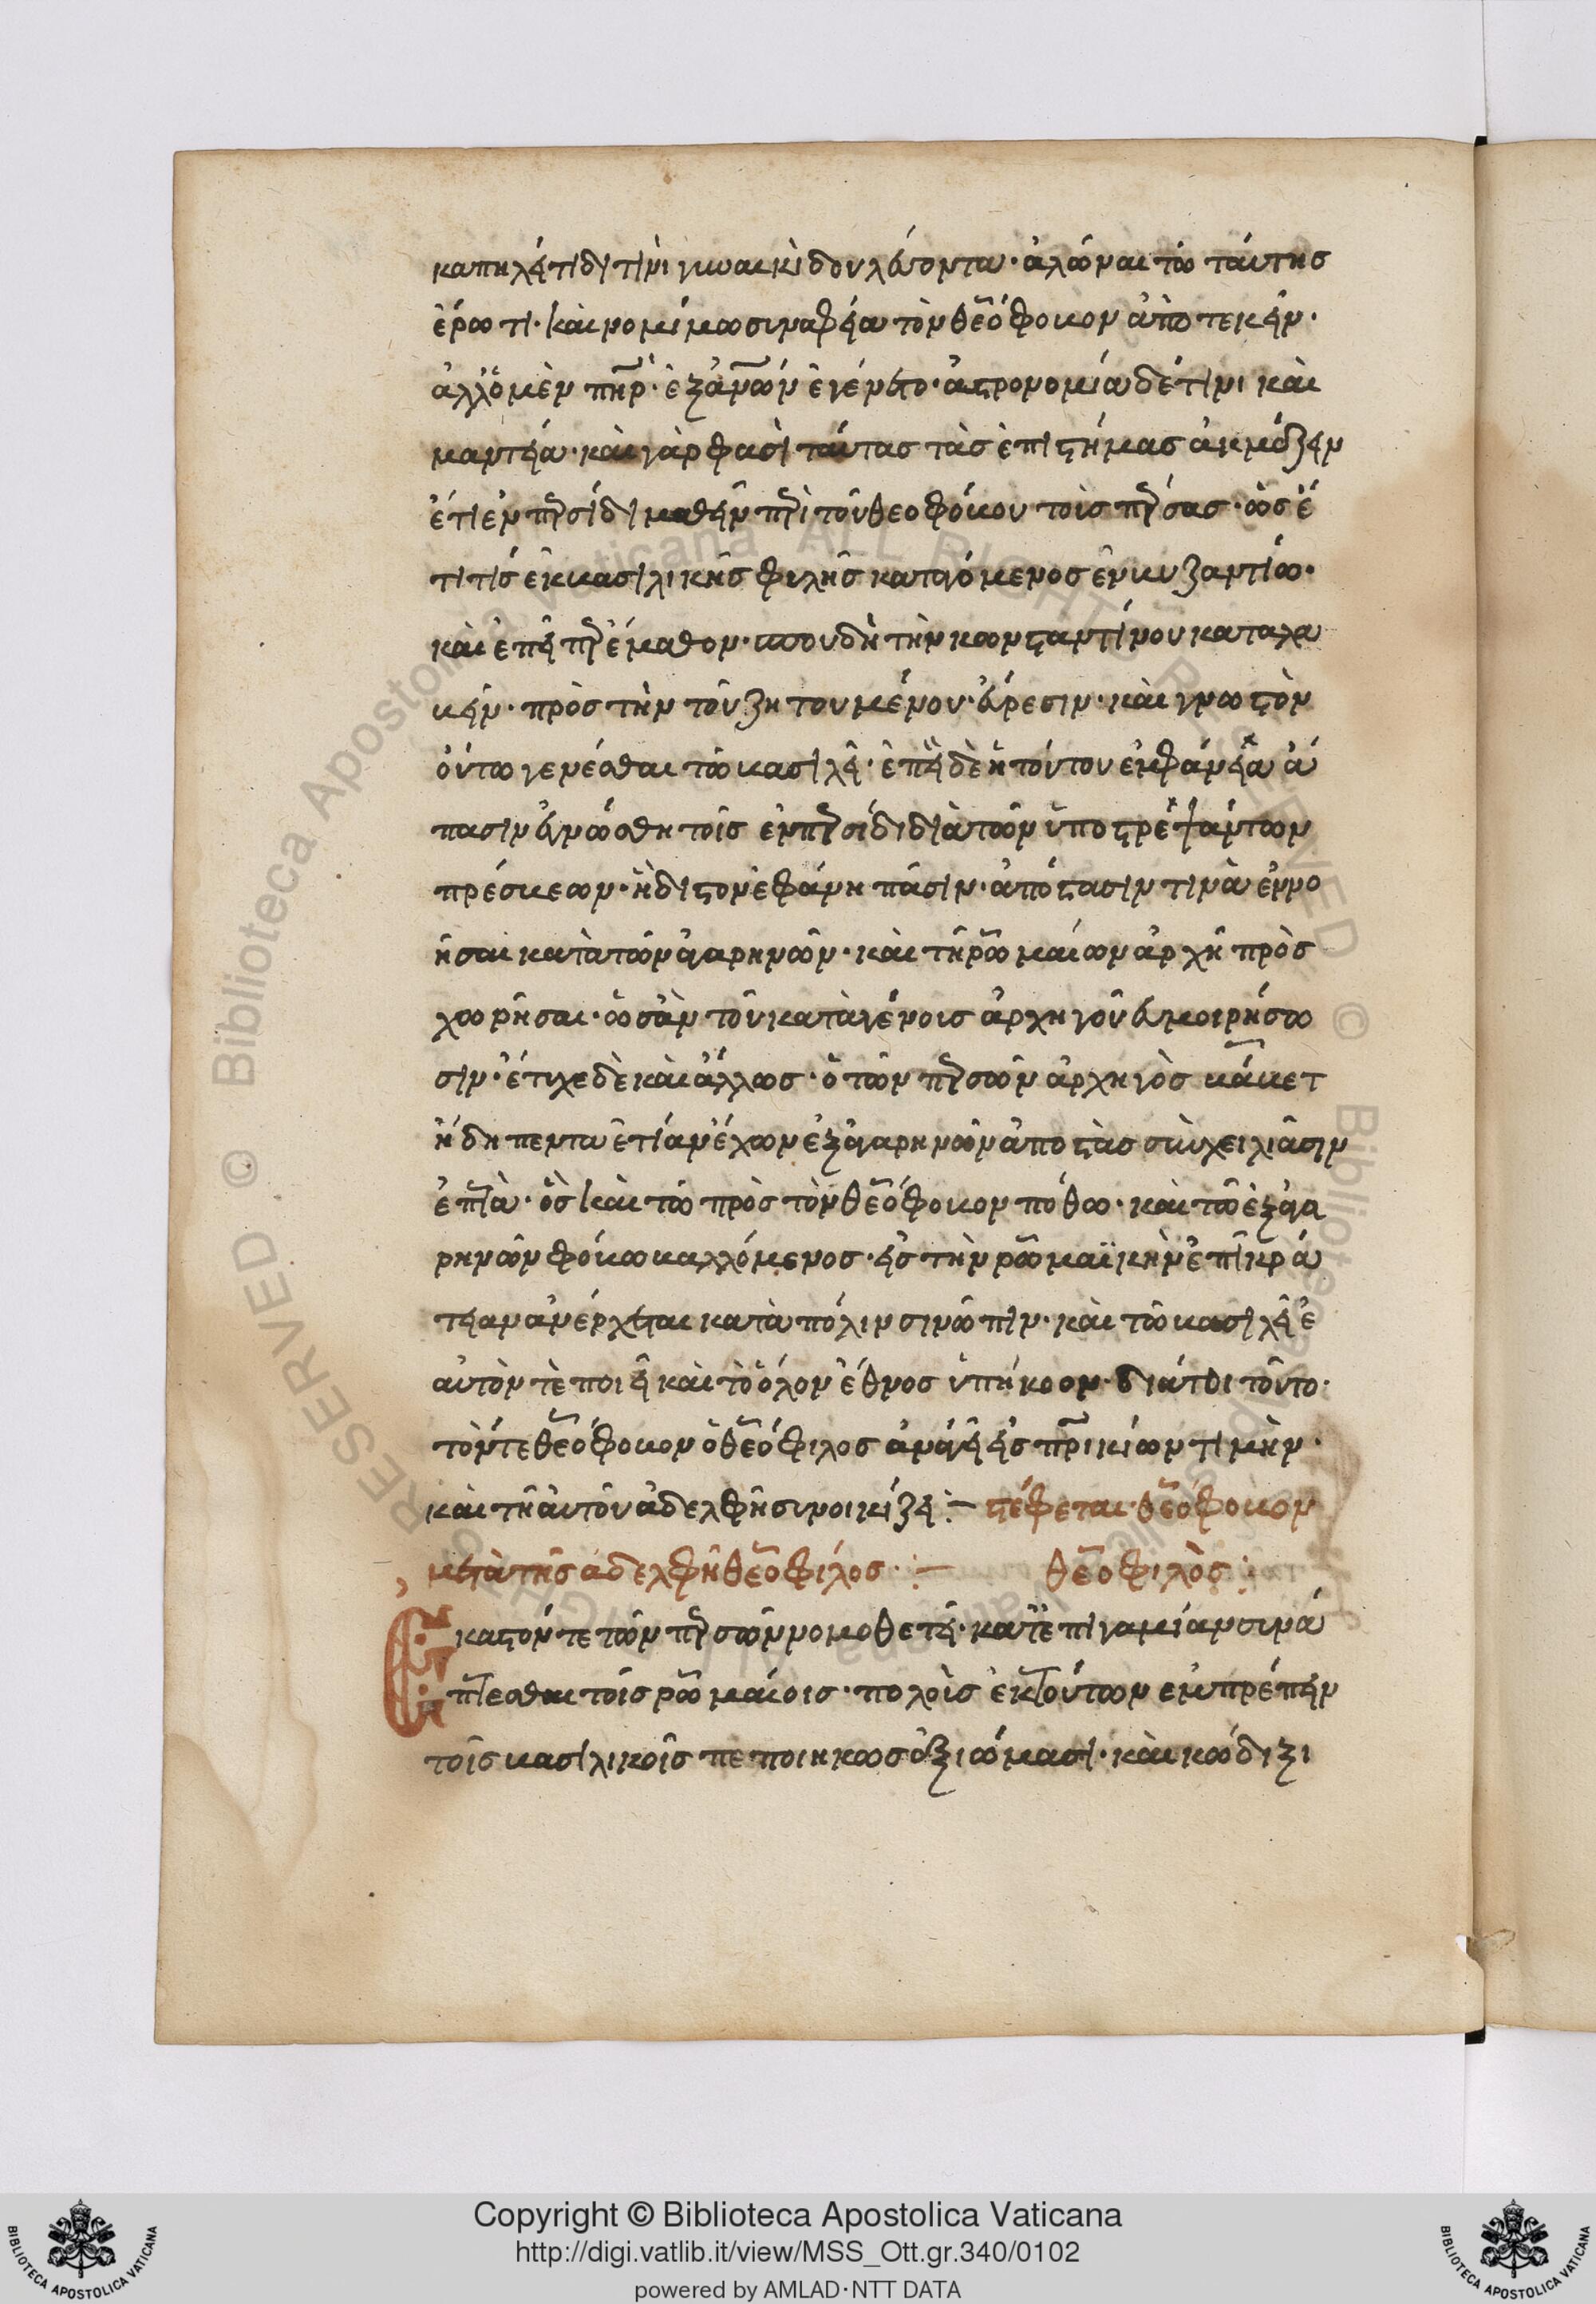 καπηλείτιδι τινι γυναικὶ δουλεύοντα· ἁλῶναι τῶ ταύτης
ἔρωτι· καὶ νομίμω συναφεία τὸν θεόφοβον ἀποτεκεῖν·
ἀλλ' ὁ μὲν πὴρ· ἐξ ἀνῶν ἐγένετο· ἀστρονομία δέ τινι καὶ
μαντεία· καὶ γὰρ φασὶ ταύτας τὰς ἐπιστήμας ἀκμάζειν
ἔτι ἐν περσίδι μαθεῖν περὶ τοῦ θεοφόβου τοῖς πέρσας· ὡς ἔ
τι τίς ἐκ βασιλικῆς φυλῆς καταγόμενος ἐν βυζαντίω·
καὶ ἐπεὶ περ ἔμαθον· σπουδῆ τὴν κωνσταντίνου καταλα
βεῖν· πρὸς τὴν τοῦ ζητουμένου· εὕρεσιν· καὶ γνωστὸν
οὕτω γενέσθαι τῶ βασιλεῖ· ἐπεὶ δὲ ἡ τούτου ἐμφάνεια ἅ
πασιν ἐγνώσθη τοῖς ἐν περσίδι διὰ τῶν ὑποστρεψάντων
πρέσβεων· ἥδιστον ἐφάνη πᾶσιν· ἀπόστασιν τινὰ ἐννο
ῆσαι κατὰ τῶν ἀγαρηνῶν· καὶ τῆ ῥωμαίων ἀρχῆ πρὸς
χωρῆσαι· ὡς ἂν τοῦ κατὰ γένοις ἀρχηγοῦ εὐμοιρήσω
σιν· ἔτυχε δὲ καὶ ἄλλως· ὁ τῶν περσῶν ἀρχηγὸς βάβεκ
ἤδη πενταετίαν ἔχων ἐξ ἀγαρηνῶν ἀποστὰς σὺν χειλιᾶσιν
ἑπτὰ· ὃς καὶ τῶ πρὸς τὸν θεόφοβον πόθω· καὶ τῶ ἐξ ἀγα
ρηνῶν φόβω βαλλόμενος· εἰς τὴν ῥωμαϊκὴν ἐπικρά
τειαν ἀνέρχεται κατὰ πόλιν σινώπιν· καὶ τῶ βασιλεῖ ἑ
αὐτὸν τὲ ποιεῖ καὶ τὸ ὅλον ἔθνος ὑπήκοον· διά τοι τοῦτο·
τόν τε θεόφοβον ὁ θεόφιλος ἀνάγει εἰς πρικίων τιμὴν·
καὶ τῆ αὐτοῦ ἀδελφῆ συνοικίζει :— στέφεται θεοφοβον
μετὰ τῆς ἀδελφῆ θεοφίλος :— θεοφιλὸς :
Ἕκαστόν τε τῶν περσῶν νομοθετεῖ· κατ' ἐπιγαμίαν συνά
πτεσθαι τοῖς ῥωμαίοις· πολοῖς ἐκ τούτων ἐμπρέπειν
τοῖς βασιλικοῖς πεποιηκὼς ἀξιώμασι· καὶ κώδιξι
Copyright © Biblioteca Apostolica Vaticana
http://digi.vatlib.it/view/MSS_Ott.gr.340/0102
powered by AMLAD·NTT DATA